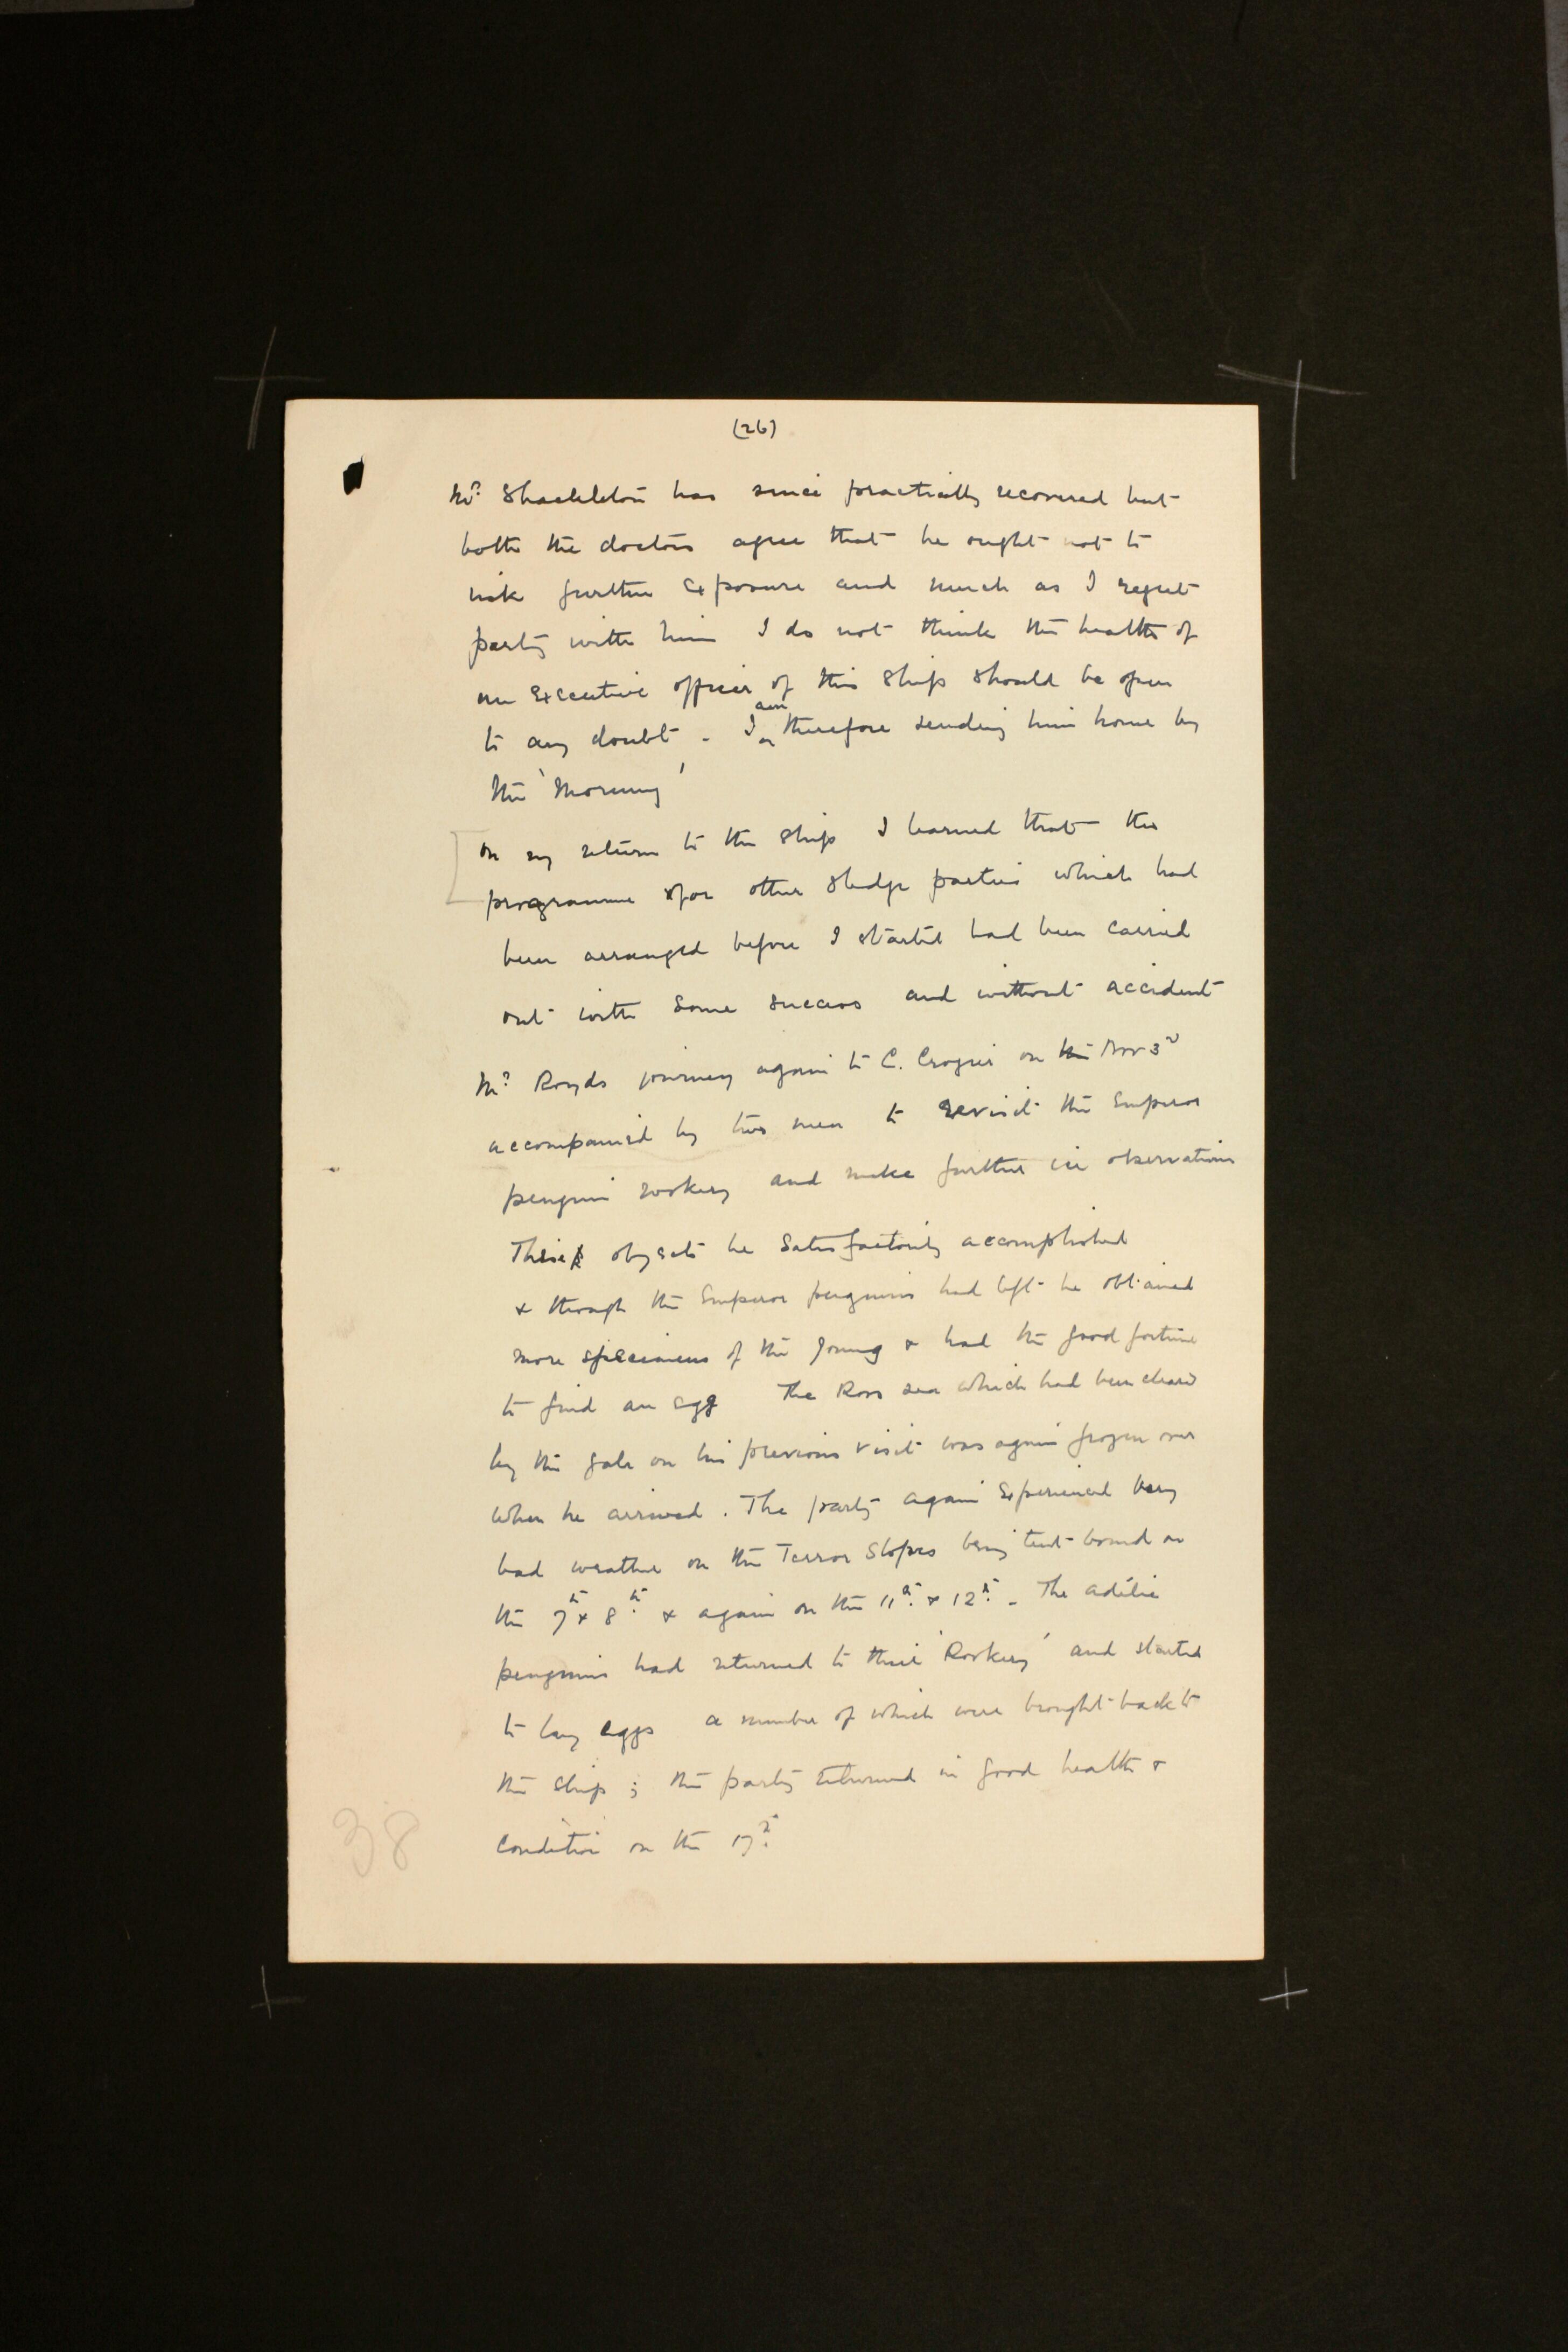 (26)
Mr. Shackleton has since practically recovered but
both the doctors agree that he ought not to
risk further exposure and much as I regret
parting with him I do not think the health of
an executive officer of this ship should be open
to any doubt - I am therefore sending him home by
the 'Morning'
On my return to the ship I learned that the
programme for other sledge parties which had
been arranged before I started had been carried
out with some success and without accident
Mr. Royds journey again to C. Crozier on the Nov 3rd
accompanied by two men to revisit the Emperor
penguin rookery and make further ice observations
These objects he satisfactorily accomplished
& though the Emperor penguins had left he obtained
more specimens of the young & had the good fortune
to find an egg The Ross sea which had been cleared
by the gale on his previous visit was again frozen over
when he arrived. The party again experienced very
bad weather on the Terror Slopes being tent-bound on
the 7th & 8th & again on the 11th & 12th - The adélie
penguins had returned to their 'Rookery' and started
to lay eggs a number of which were brought back to
the ship; the party returned in good health &
condition on the 17th
38